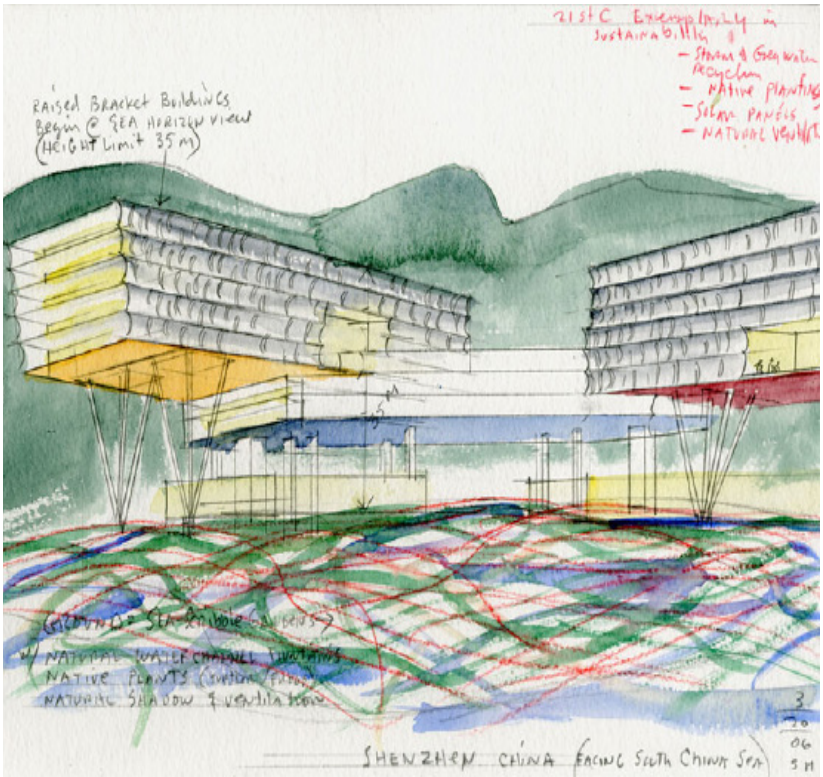 21st C Exemplarity in
Sustainability
- Storm & Grey water
recycling
- Native planting
- Solar PANELS
- NATURAL Ventil
RAISED BRACKET BUILDINGS
Begin @ SEA HORIZON VIEW
(HEIGHT Limit 35 M)
35 M
GROUND = SEA Scribble
w/ NATURAL WATER CHANNEL FOUNTAINS
NATIVE PLANTS
NATURAL SHADOW & VENTILATION
SHENZHEN CHINA (FACING SOUTH CHINA SEA)
3
20
06
SH